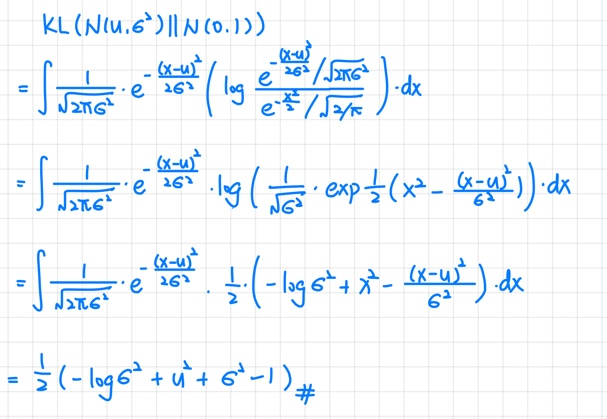 KL(N(μ,σ²)||N(0,1))
= ∫ 1/√(2πσ²) · e^(-(x-μ)²/2σ²) (log (e^(-(x-μ)²/2σ²)/√(2πσ²)) / (e^(-x²/2)/√(2/π))) · dx
= ∫ 1/√(2πσ²) · e^(-(x-μ)²/2σ²) · log(1/√(σ²) · exp ½(x² - (x-μ)²/σ²)) · dx
= ∫ 1/√(2πσ²) · e^(-(x-μ)²/2σ²) · ½ · (-log σ² + x² - (x-μ)²/σ²) · dx
= ½ (-log σ² + μ² + σ² - 1) #